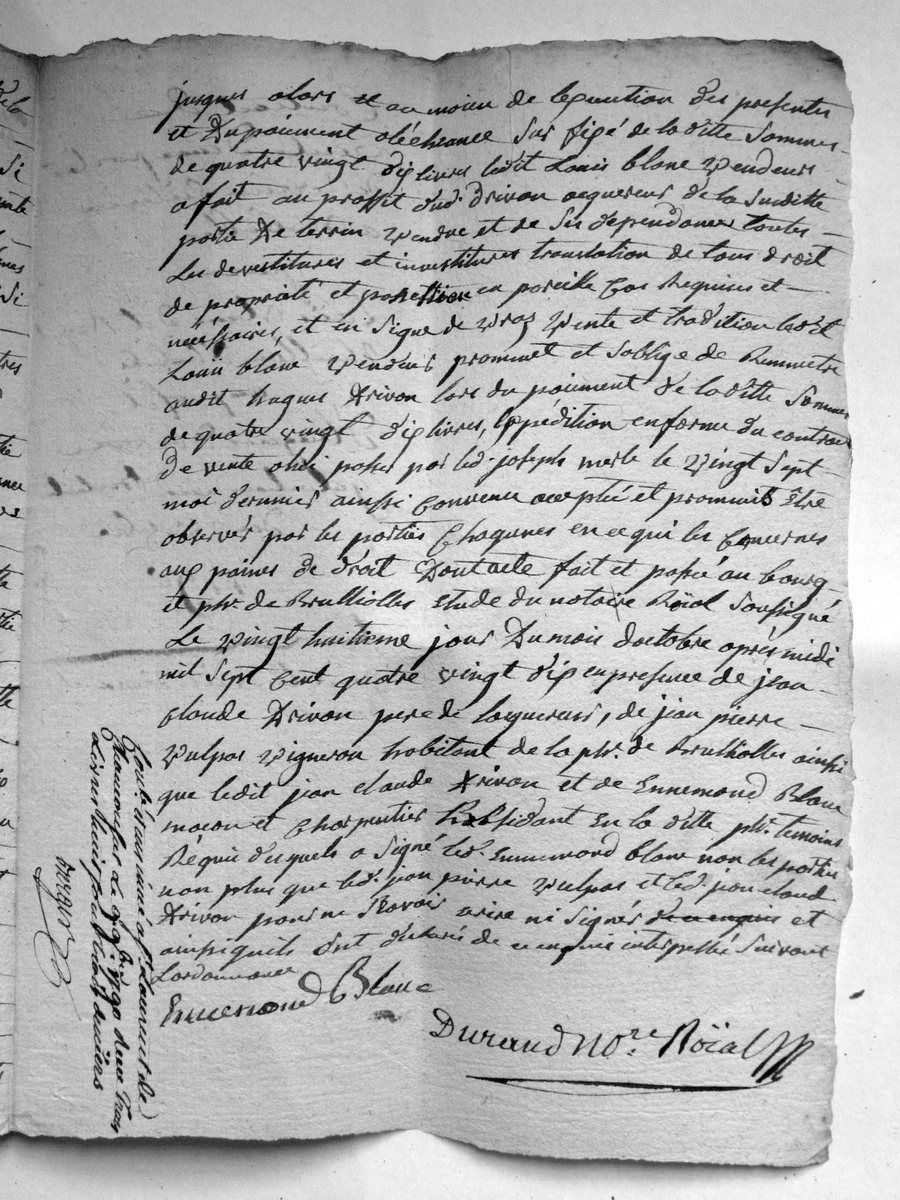 jusques alors et au moien de lexecution des presentes
et du paiement a lécheance sus fixé de la ditte somme
de quatre vingt dix livres ledit Louis blanc vendeur
a fait au proffit dud. drivon acquereur de la susditte
partie de terrin vendue et de ses dependances toutes
les devestitures et investitures translation de tous droit
de proprieté et possession en pareille cas Requises et
nécéssaires, et en signe de vray vente et tradition ledit
Louis blanc vendeur prommet et soblige de Remmetre
audit hugues drivon lors du paiement de la ditte somme
de quatre vingt dix livres, lexpédition en forme du contrac
de vente a lui passer par led. joseph merle le vingt sept
moi dernier ainsi convenu accepté et prommis être
observés par les parties chaqunes en ce qui les concernes
aux paines de droit dont acte fait et passé au bourg
et phe. de Brulliolles étude du notaire Roïal soussigné
le vingt huitieme jour du mois doctobre aprés midi
mil sept cent quatre vingt dix en presence de jean
claude drivon pere de lacquereur, de jean pierre
vulpas vigneron habitant de la phe. de Brulliolles ainsi
que ledit jean claude drivon et de Ennemond Blanc
macon et charpentier Résidant en la ditte phe. temoins
Réquis desquels a signé led. Ennemond blanc non les parties
non plus que led. jean pierre vulpas et led. jean claud
drivon pour ne scavoir écrire ni signér de ce enquis et
ainsi quils ont déclarés de ce enquis interpellés suivant
Lordonnance
Ennemond Blanc
Durand No.re Roïal
Conlé. d'une mine a St Laurent de
Chamousset le 9 9bre 1790 deux
Livres huit sous